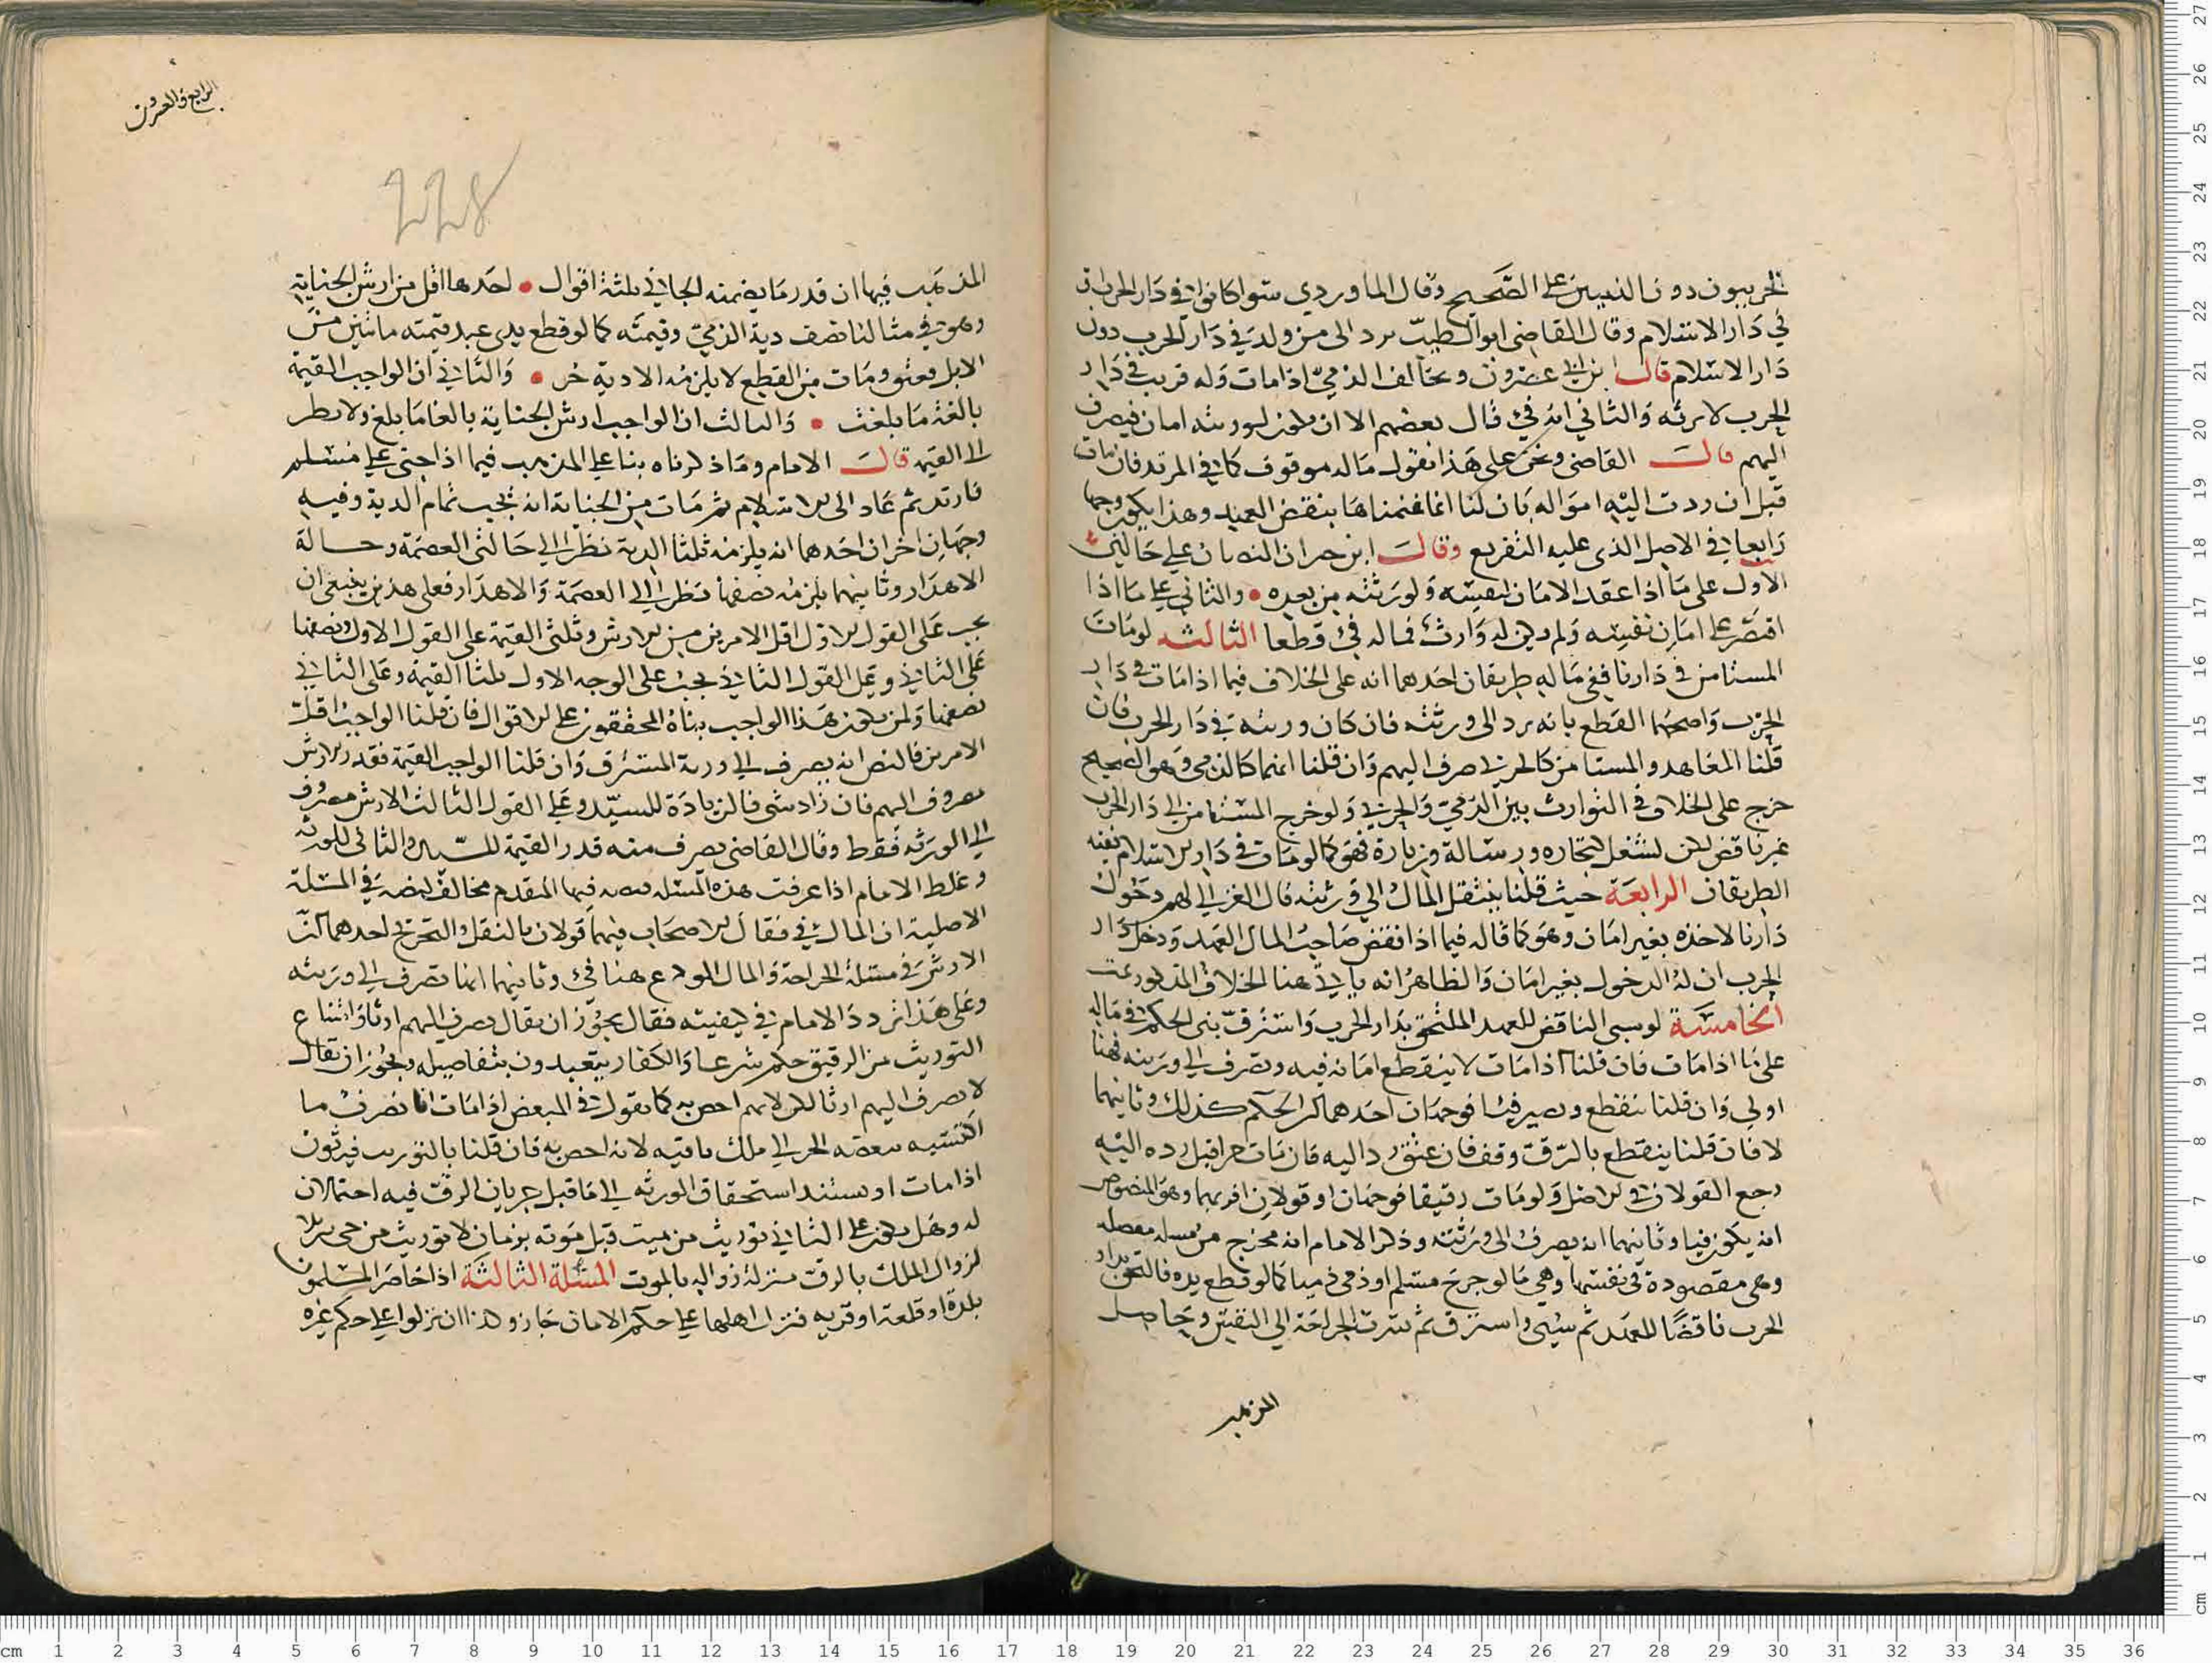 الحربيون دون الذميين على الصحيح وقال الماوردي سوا كانوا في دار الحرب او
في دار الاسلام وقال القاضي ابو الطيب يرد الى من ولد في دار الحرب دون
دار الاسلام قال ابن ابي عصرون ويخالف الذمي اذا مات وله قريب في دار
الحرب لا يرثه والثاني انه فيء قال بعضهم الا ان يكون لورثته امان فيصرف
اليهم قال القاضي ونحن على هذا نقول ماله موقوف كما في المرتد فان مات
قبل ان ردت اليه امواله بان لنا انما غنمناها بنقض العهد وهذا يكون وجها
رابعا في الاصل الذي عليه التفريع وقال ابن حيران النصان على حالين
الاول على ما اذا عقد الامان لنفسه ولورثته من بعده والثاني على ما اذا
اقتصر على امان نفسه ولم يكن له وارث فماله فيء قطعا الثالثه لو مات
المستامن في دارنا ففي ماله طريقان احدهما انه على الخلاف فيما اذا مات في دار
الحرب واصحهما القطع بانه يرد الى ورثته فان كان ورثته في دار الحرب فان
قلنا المعاهد والمستامن كالحربي صرف اليهم وان قلنا انهما كالذمي وهو الصحيح
خرج على الخلاف في التوارث بين الذمي والحربي ولو خرج المستامن الى دار الحرب
غير ناقض لكن لشغل لتجاره ورسالة وزيارة فهو كما لو مات في دار الاسلام ففيه
الطريقان الرابعة حيث قلنا ينتقل المال الى ورثته قال الغزالي لهم دخول
دارنا لاخذه بغير امان وهو كما قاله فيما اذا نقض صاحب المال العهد ودخل دار
الحرب ان له الدخول بغير امان والظاهر انه ياتي هنا الخلاف المذكور ثمت
الخامسة لو سبي الناقض للعهد الملتحق بدار الحرب واسترق بني الحكم في ماله
على ما اذا مات فان قلنا اذا مات لا ينقطع امانه فيه ويصرف الى ورثته فهنا
اولى وان قلنا ينقطع ويصير فيئا فوجهان احدهما ان الحكم كذلك وثانيهما
لا فان قلنا ينقطع بالرق وقف فان عتق رد اليه فان مات حرا قبل رده اليه
رجع القولان في الاصل ولو مات رقيقا فوجهان او قولان اقربهما وهو المنصوص
انه يكون فيا وثانيهما انه يصرف الى ورثته وذكر الامام انه مخرج من مسله معضله
وهي مقصودة في نفسها وهي ما لو جرح مسلم او ذمي ذميا كما لو قطع يده فالتحق بدار
الحرب ناقضا للعهد ثم سبي واسترق ثم سرت الجراحة الى النفس وحاصل
المذهب
الرابع والعشرون
228
المذهب فيها ان قدر ما يضمنه الجاني ثلثة اقوال احدها اقل من ارش الجناية
وهو في مثالنا نصف دية الذمي وقيمته كما لو قطع يدي عبد قيمته مائتين من
الابل فعتق ومات من القطع لا يلزمه الا دية حر والثاني ان الواجب القيمة
بالغة ما بلغت والثالث ان الواجب ارش الجناية بالغا ما بلغ ولا ينظر
الى القيمه قال الامام وما ذكرناه بنا على المذهب فيما اذا جنى على مسلم
فارتد ثم عاد الى الاسلام ثم مات من الجناية انه يجب تمام الدية وفيه
وجهان اخران احدهما انه يلزمه ثلثا الدية نظرا الى حالتي العصمة وحالة
الاهدار وثانيهما يلزمه نصفها نظرا الى العصمة والاهدار فعلى هذين ينبغي ان
يجب على القول الاول اقل الامرين من الارش وثلثي القيمة على القول الاول ونصفها
على الثاني وعلى القول الثاني يجب على الوجه الاول ثلثا القيمة وعلى الثاني
نصفها ولمن يكون هذا الواجب بناه المحققون على الاقوال فان قلنا الواجب اقل
الامرين فالنص انه يصرف الى ورثة المسترق وان قلنا الواجب القيمة فقدر الارش
مصروف اليهم فان زاد شي فالزيادة للسيد وعلى القول الثالث الارش مصروف
الى الورثه فقط وقال القاضي يصرف منه قدر القيمة للسيد والثاني للورثه
وغلط الامام اذا عرفت هذه المسئله فنصه فيها المتقدم مخالف لنصه في المسئلة
الاصلية ان المال فيء فقال الاصحاب فيهما قولان بالنقل والتخريج احدهما ان
الارش في مسئلة الجراحة والمال المودع هنا فيء وثانيهما انما تصرف الى ورثته
وعلى هذا تردد الامام في كيفيته فقال يجوز ان يقال يصرف اليهم ارثا وامتناع
التوريث من الرقيق حكم شرعا والكفار يتعبدون بتفاصيله ويجوز ان يقال
لا يصرف اليهم ارثا لكن لانهم اخص به كما نقول في المبعض اذا مات انما نصرف ما
اكتسبه ببعضه الحر الى ملك باقيه لانه اخص به فان قلنا بالتوريث فيرثون
اذا مات او يستند استحقاق الورثه الى ما قبل جريان الرق فيه احتمالان
له وهل يكون على الثاني توريث من ميت قبل موته بزمان لا توريث من حي
لزوال الملك بالرق منزلة زواله بالموت المسئلة الثالثة اذا حاصر المسلمون
بلدة او قلعة او قريه فنزل اهلها على حكم الامان جاز وكذا ان نزلوا على حكم غيره